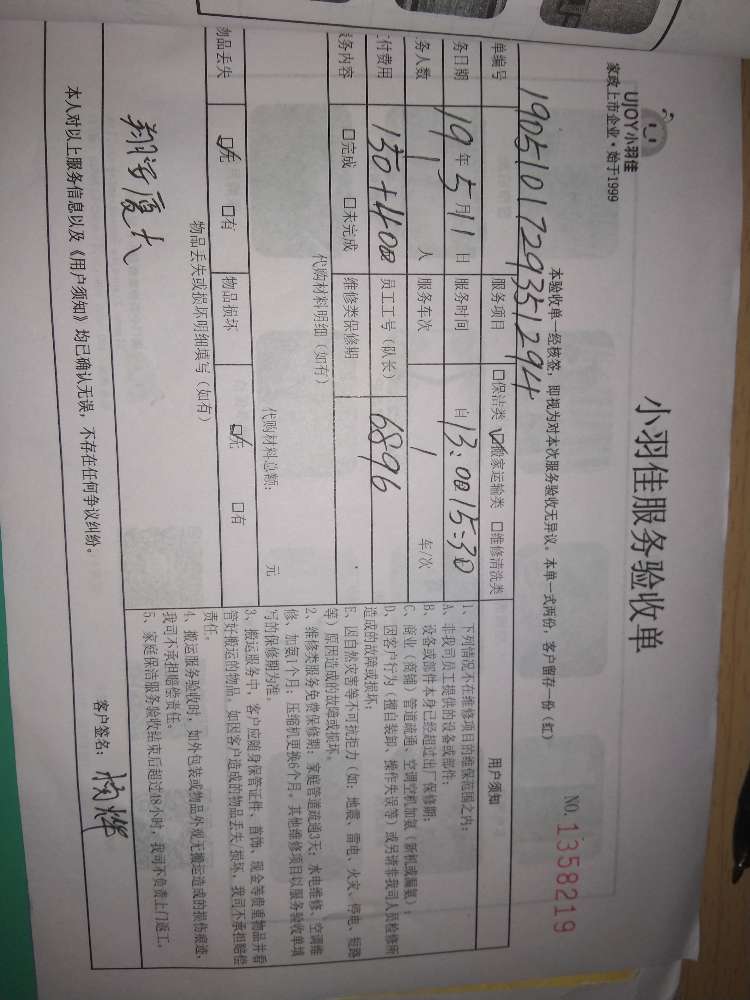 UJOY小羽佳
家政上市企业·始于1999
小羽佳服务验收单
NO.1358219
本验收单一经核签，即视为对本次服务验收无异议。本单一式两份，客户留存一份（红）
单编号 190510172935 1294 服务项目 □保洁类 ☑搬家运输类 □维修清洗类
务日期 19年5月11日 服务时间 自13:00 15:30
务人数 1 人 服务车次 1 车/次
付费用 130+400 员工工号（队长） 6896
服务内容 □完成 □未完成 维修类保修期
代购材料明细（如有）
代购材料总额： 元
物品丢失 ☑无 □有 物品损坏 ☑无 □有
物品丢失或损坏明细填写（如有）
翔安厦大
用户须知
1、下列情况不在维修项目的维保范围之内：
A、非我司员工提供的设备或部件；
B、设备或部件本身已经超过出厂保修期；
C、商业（商铺）管道疏通、空调空机加氨（新机或漏氨）；
D、因客户行为（擅自装卸、操作失误等）或另请非我司人员检修所
造成的故障或损坏；
E、因自然灾害等不可抗拒力（如：地震、雷电、火灾、停电、短路
等）原因造成的故障或损坏。
2、维修类服务免费保修期：家庭管道疏通3天；水电维修、空调维
修、加氨1个月；压缩机更换6个月，其他维修项目以服务验收单填
写的保修期为准。
3、搬运服务中，客户应随身保管证件、首饰、现金等贵重物品并看
管好搬运的物品，如因客户造成的物品丢失/损坏，我司不承担赔偿
责任。
4、搬运服务验收时，如外包装或物品外观无搬运造成的损伤痕迹，
我司不承担赔偿责任。
5、家庭保洁服务验收结束后超过48小时，我司不负责上门返工。
本人对以上服务信息以及《用户须知》均已确认无误，不存在任何争议纠纷。
客户签名：